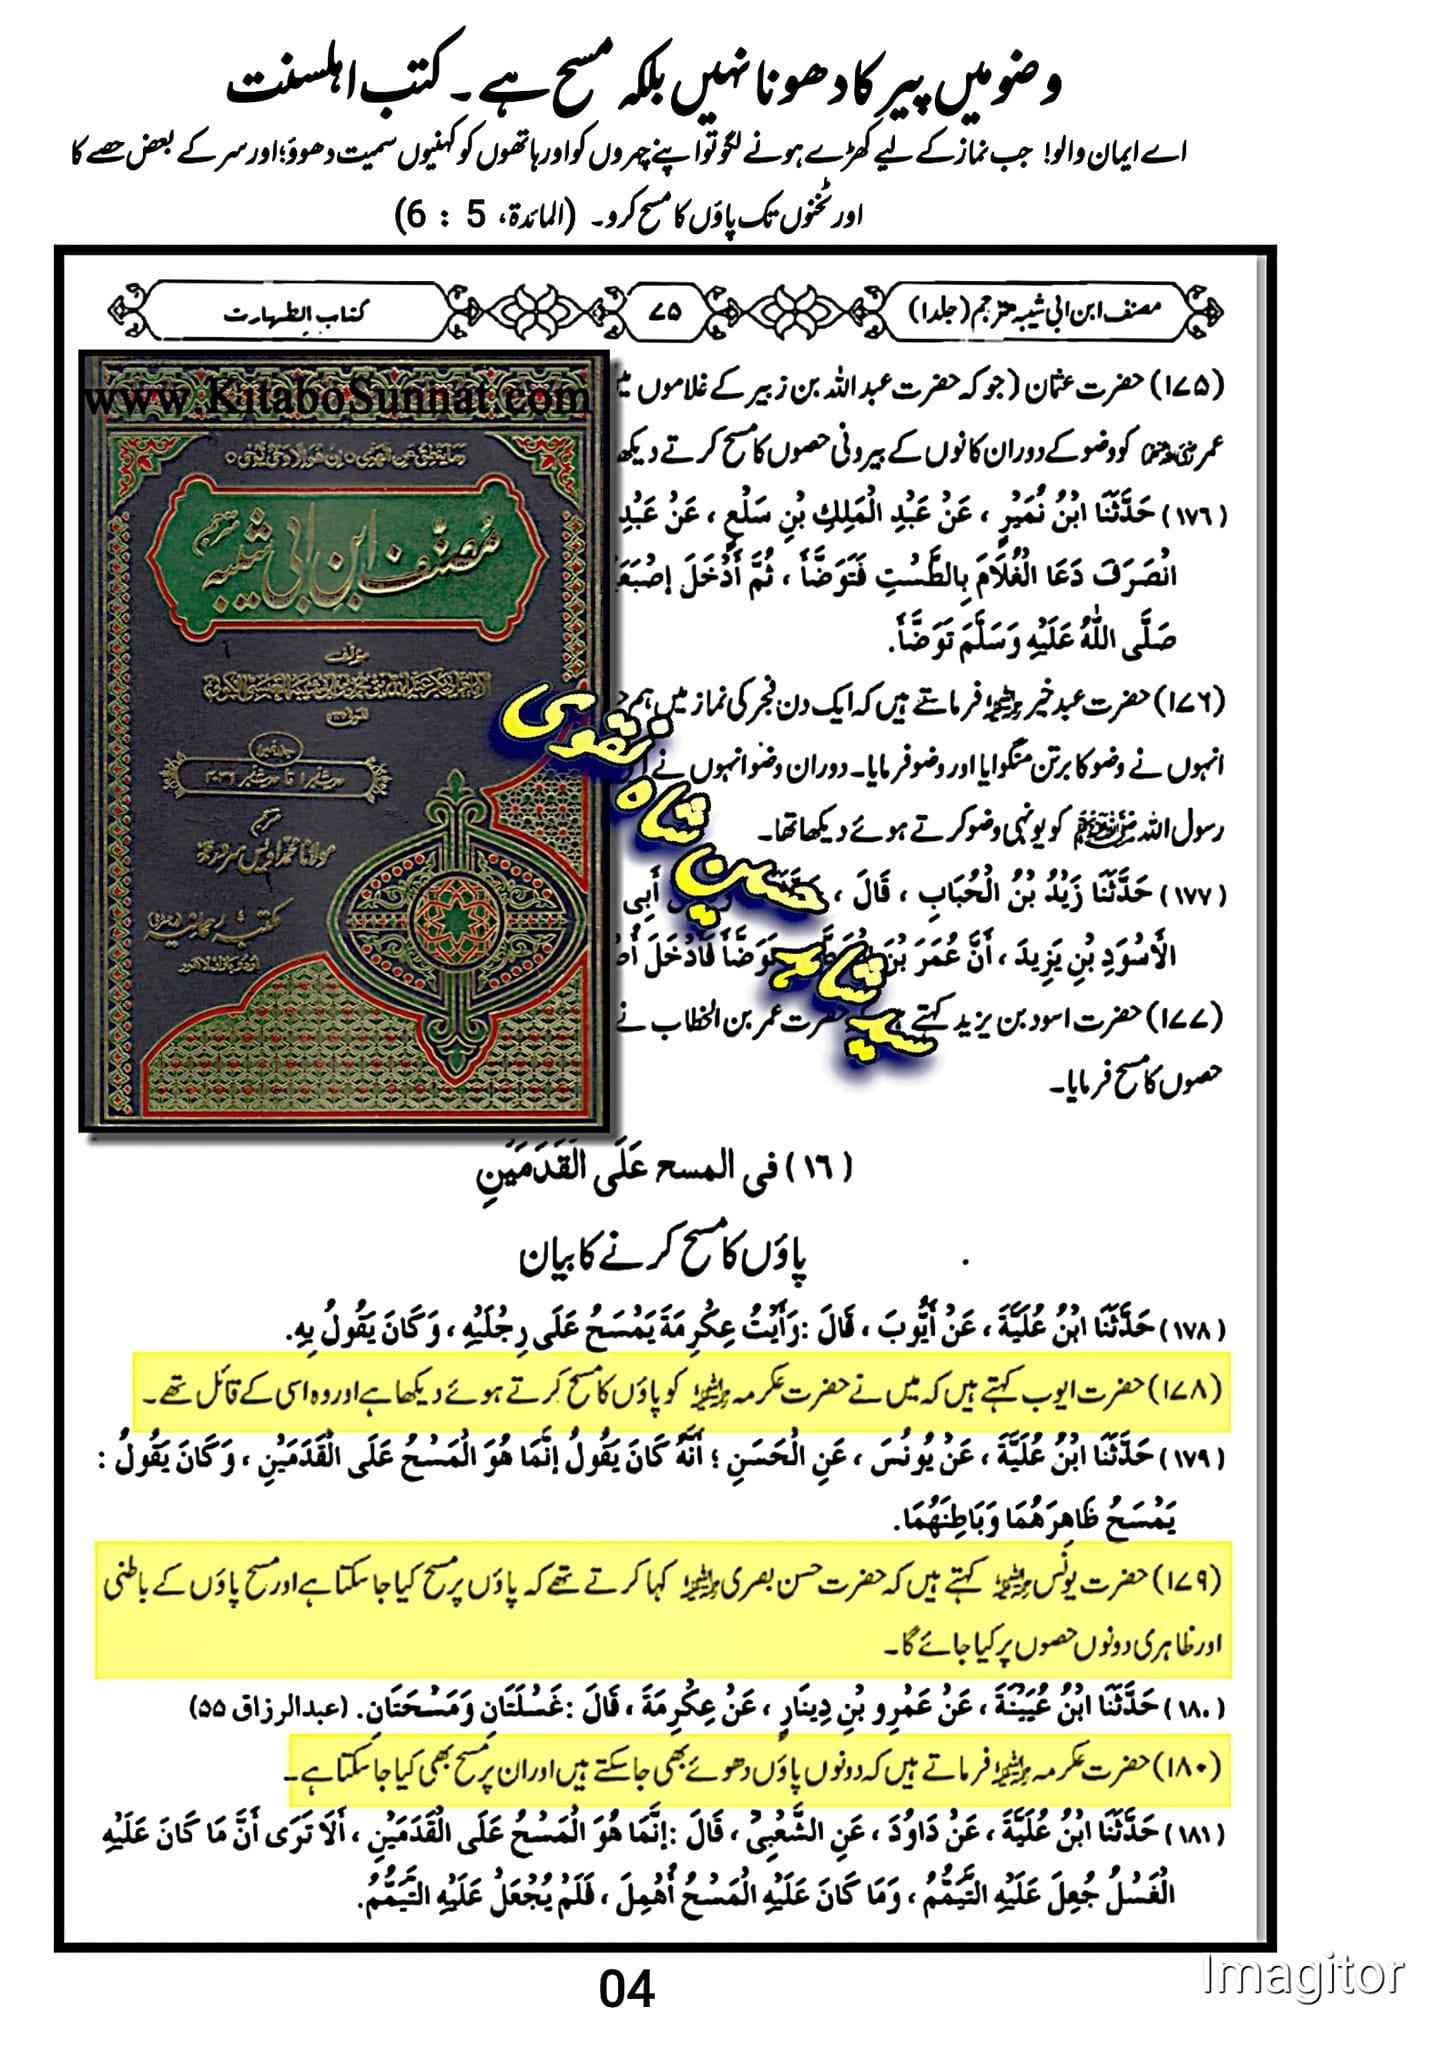 وضو میں پیر کا دھونا نہیں بلکہ مسح ہے۔ کتب اہلسنت
اے ایمان والو! جب نماز کے لیے کھڑے ہونے لگو تو اپنے چہروں کو اور ہاتھوں کو کہنیوں سمیت دھوؤ؛ اور سر کے بعض حصے کا
اور ٹخنوں تک پاؤں کا مسح کرو۔ (المائدۃ، 5 : 6)
مصنف ابن ابی شیبہ مترجم (جلد ۱)
۷۵
کتاب الطهارت
(۱۷۵) حضرت عثمان (جو کہ حضرت عبد اللہ بن زبیر کے غلاموں میں
عمر کو وضو کے دوران کانوں کے بیرونی حصوں کا مسح کرتے دیکھا
(۱۷۶) حَدَّثَنَا ابْنُ نُمَيْرٍ ، عَنْ عَبْدِ الْمَلِكِ بْنِ سَلْعٍ ، عَنْ عَبْدِ
انْصَرَفَ دَعَا الْغُلَامَ بِالطَّسْتِ فَتَوَضَّأَ ، ثُمَّ أَدْخَلَ إِصْبَعَ
صَلَّى اللَّهُ عَلَيْهِ وَسَلَّمَ تَوَضَّأَ.
(۱۷۶) حضرت عبد خیر فرماتے ہیں کہ ایک دن فجر کی نماز میں ہم
انہوں نے وضو کا برتن منگوایا اور وضو فرمایا۔ دوران وضو انہوں نے
رسول اللہ ﷺ کو یونہی وضو کرتے ہوئے دیکھا تھا۔
(۱۷۷) حَدَّثَنَا زَيْدُ بْنُ الْحُبَابِ ، قَالَ ، أَبِي
الْأَسْوَدِ بْنِ يَزِيدَ ، أَنَّ عُمَرَ بْنَ تَوَضَّأَ فَأَدْخَلَ
(۱۷۷) حضرت اسود بن یزید کہتے حضرت عمر بن الخطاب نے
حصوں کا مسح فرمایا۔
www.KitaboSunnat.com
وما ينطق عن الهوى ان هو الا وحي يوحى
مصنف ابن ابی شیبہ
مترجم
مؤلف
جلد نمبر ۱
مترجم
مولانا محمد اویس سرور
مکتبہ رحمانیہ
سید شاہد حسین شاہ نقوی
(۱۶) فی المسح عَلَى الْقَدَمَيْنِ
پاؤں کا مسح کرنے کا بیان
(۱۷۸) حَدَّثَنَا ابْنُ عُلَيَّةَ ، عَنْ أَيُّوبَ ، قَالَ :رَأَيْتُ عِكْرِمَةَ يَمْسَحُ عَلَى رِجْلَيْهِ ، وَكَانَ يَقُولُ بِهِ.
(۱۷۸) حضرت ایوب کہتے ہیں کہ میں نے حضرت عکرمہ کو پاؤں کا مسح کرتے ہوئے دیکھا ہے اور وہ اسی کے قائل تھے۔
(۱۷۹) حَدَّثَنَا ابْنُ عُلَيَّةَ ، عَنْ يُونُسَ ، عَنِ الْحَسَنِ ؛ أَنَّهُ كَانَ يَقُولُ إنَّمَا هُوَ الْمَسْحُ عَلَى الْقَدَمَيْنِ ، وَكَانَ يَقُولُ :
يَمْسَحُ ظَاهِرَهُمَا وَبَاطِنَهُمَا.
(۱۷۹) حضرت یونس کہتے ہیں کہ حضرت حسن بصری کہا کرتے تھے کہ پاؤں پر مسح کیا جا سکتا ہے اور مسح پاؤں کے باطنی
اور ظاہری دونوں حصوں پر کیا جائے گا۔
(۱۸۰) حَدَّثَنَا ابْنُ عُيَيْنَةَ ، عَنْ عَمْرِو بْنِ دِينَارٍ ، عَنْ عِكْرِمَةَ ، قَالَ :غَسْلَتَانِ وَمَسْحَتَانِ. (عبدالرزاق ۵۵)
(۱۸۰) حضرت عکرمہ فرماتے ہیں کہ دونوں پاؤں دھوئے بھی جا سکتے ہیں اور ان پر مسح بھی کیا جا سکتا ہے۔
(۱۸۱) حَدَّثَنَا ابْنُ عُلَيَّةَ ، عَنْ دَاوُدَ ، عَنِ الشَّعْبِيِّ ، قَالَ :إنَّمَا هُوَ الْمَسْحُ عَلَى الْقَدَمَيْنِ ، أَلَا تَرَى أَنَّ مَا كَانَ عَلَيْهِ
الْغَسْلُ جُعِلَ عَلَيْهِ التَّيَمُّمُ ، وَمَا كَانَ عَلَيْهِ الْمَسْحُ أُهْمِلَ ، فَلَمْ يُجْعَلْ عَلَيْهِ التَّيَمُّمُ.
04
Imagitor